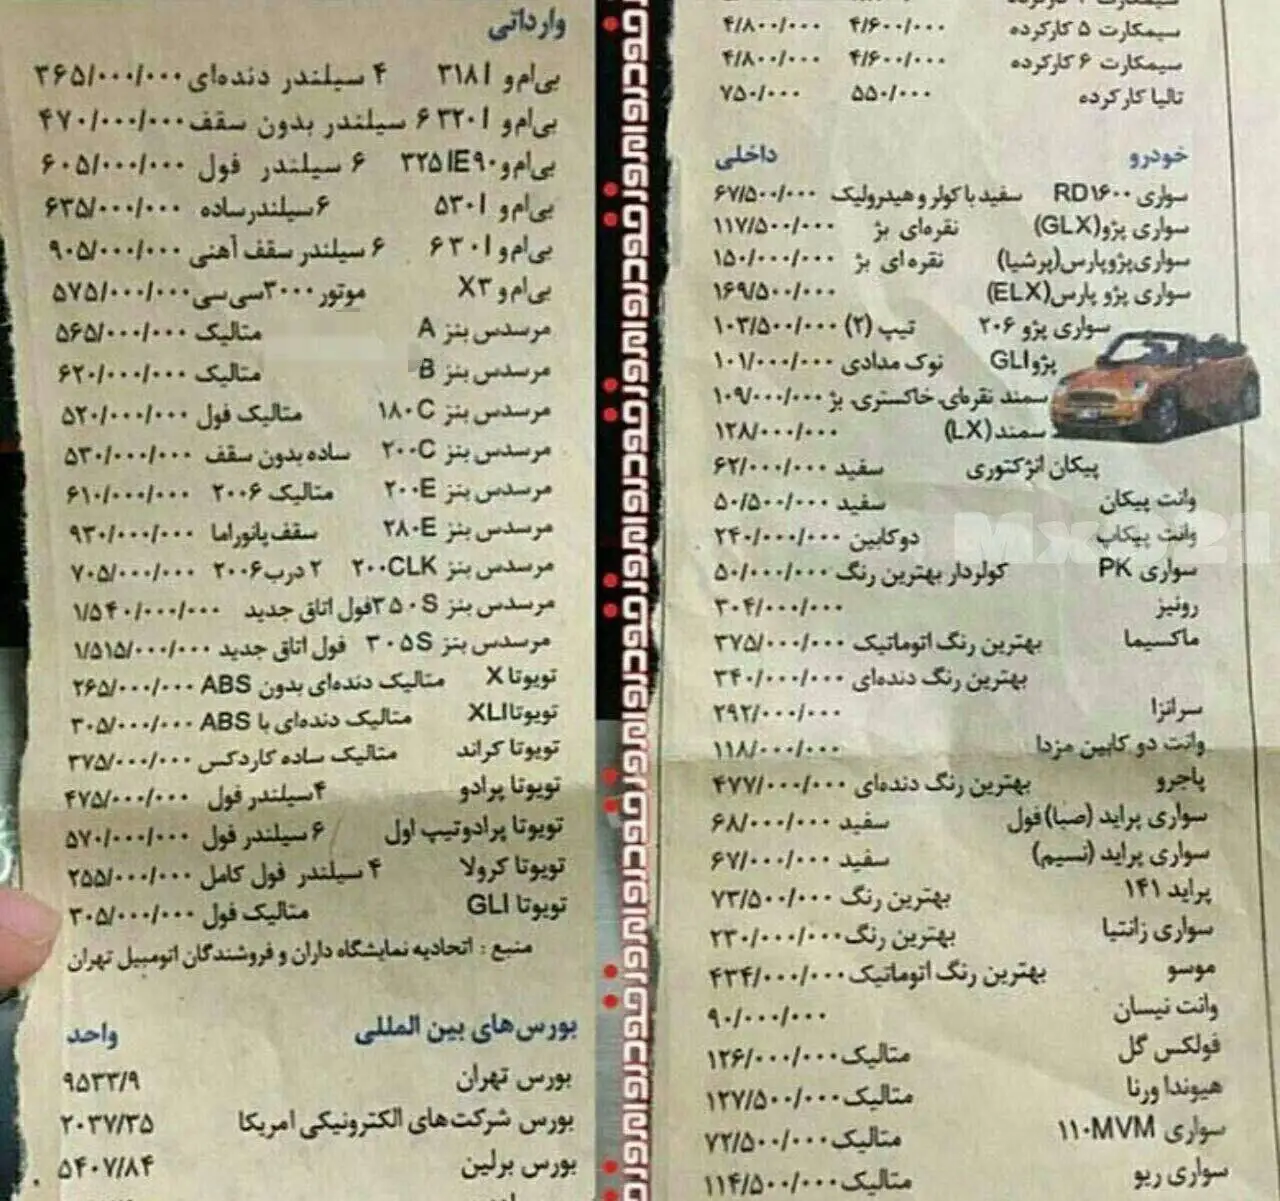 سیمکارت ۵ کارکرده ۴/۶۰۰/۰۰۰ ۴/۸۰۰/۰۰۰
سیمکارت ۶ کارکرده ۴/۶۰۰/۰۰۰ ۴/۸۰۰/۰۰۰
تالیا کارکرده ۵۵۰/۰۰۰ ۷۵۰/۰۰۰
خودرو داخلی
سواری RD۱۶۰۰ سفید با کولر و هیدرولیک ۶۷/۵۰۰/۰۰۰
سواری پژو(GLX) نقره‌ای بژ ۱۱۷/۵۰۰/۰۰۰
سواری‌پژوپارس(پرشیا) نقره‌ای بژ ۱۵۰/۰۰۰/۰۰۰
سواری پژو پارس(ELX) ۱۶۹/۵۰۰/۰۰۰
سواری پژو ۲۰۶ تیپ (۲) ۱۰۳/۵۰۰/۰۰۰
پژوGLI نوک مدادی ۱۰۱/۰۰۰/۰۰۰
سمند نقره‌ای، خاکستری، بژ ۱۰۹/۰۰۰/۰۰۰
سمند(LX) ۱۲۸/۰۰۰/۰۰۰
پیکان انژکتوری سفید ۶۲/۰۰۰/۰۰۰
وانت پیکان سفید ۵۰/۵۰۰/۰۰۰
وانت پیکاپ دوکابین ۲۴۰/۰۰۰/۰۰۰
سواری PK کولردار بهترین رنگ ۵۰/۰۰۰/۰۰۰
رونیز ۳۰۴/۰۰۰/۰۰۰
ماکسیما بهترین رنگ اتوماتیک ۳۷۵/۰۰۰/۰۰۰
بهترین رنگ دنده‌ای ۳۴۰/۰۰۰/۰۰۰
سرانزا ۲۹۲/۰۰۰/۰۰۰
وانت دو کابین مزدا ۱۱۸/۰۰۰/۰۰۰
پاجرو بهترین رنگ دنده‌ای ۴۷۷/۰۰۰/۰۰۰
سواری پراید (صبا) فول سفید ۶۸/۰۰۰/۰۰۰
سواری پراید (نسیم) سفید ۶۷/۰۰۰/۰۰۰
پراید ۱۴۱ بهترین رنگ ۷۳/۵۰۰/۰۰۰
سواری زانتیا بهترین رنگ ۲۳۰/۰۰۰/۰۰۰
موسو بهترین رنگ اتوماتیک ۴۳۴/۰۰۰/۰۰۰
وانت نیسان ۹۰/۰۰۰/۰۰۰
فولکس گل متالیک ۱۲۶/۰۰۰/۰۰۰
هیوندا ورنا متالیک ۱۲۷/۵۰۰/۰۰۰
سواری ۱۱۰MVM متالیک ۷۲/۵۰۰/۰۰۰
سواری ریو متالیک ۱۱۴/۵۰۰/۰۰۰
وارداتی
بی‌ام‌و ۳۱۸I ۴ سیلندر دنده‌ای ۳۶۵/۰۰۰/۰۰۰
بی‌ام‌و ۳۲۰I ۶ سیلندر بدون سقف ۴۷۰/۰۰۰/۰۰۰
بی‌ام‌و ۳۲۵IE۹۰ ۶ سیلندر فول ۶۰۵/۰۰۰/۰۰۰
بی‌ام‌و ۵۳۰I ۶ سیلندر ساده ۶۳۵/۰۰۰/۰۰۰
بی‌ام‌و ۶۳۰I ۶ سیلندر سقف آهنی ۹۰۵/۰۰۰/۰۰۰
بی‌ام‌و X۳ موتور ۳۰۰۰سی‌سی ۵۷۵/۰۰۰/۰۰۰
مرسدس بنز A متالیک ۵۶۵/۰۰۰/۰۰۰
مرسدس بنز B متالیک ۶۲۰/۰۰۰/۰۰۰
مرسدس بنز ۱۸۰C متالیک فول ۵۲۰/۰۰۰/۰۰۰
مرسدس بنز ۲۰۰C ساده بدون سقف ۵۳۰/۰۰۰/۰۰۰
مرسدس بنز ۲۰۰E متالیک ۲۰۰۶ ۶۱۰/۰۰۰/۰۰۰
مرسدس بنز ۲۸۰E سقف پانوراما ۹۳۰/۰۰۰/۰۰۰
مرسدس بنز ۲۰۰CLK ۲ درب۲۰۰۶ ۷۰۵/۰۰۰/۰۰۰
مرسدس بنز ۳۵۰S فول اتاق جدید ۱/۵۴۰/۰۰۰/۰۰۰
مرسدس بنز ۳۰۵S فول اتاق جدید ۱/۵۱۵/۰۰۰/۰۰۰
تویوتا X متالیک دنده‌ای بدون ABS ۲۶۵/۰۰۰/۰۰۰
تویوتا XLI متالیک دنده‌ای با ABS ۳۰۵/۰۰۰/۰۰۰
تویوتا کراند متالیک ساده کاردکس ۳۷۵/۰۰۰/۰۰۰
تویوتا پرادو ۴سیلندر فول ۴۷۵/۰۰۰/۰۰۰
تویوتا پرادوتیپ اول ۶ سیلندر فول ۵۷۰/۰۰۰/۰۰۰
تویوتا کرولا ۴ سیلندر فول کامل ۲۵۵/۰۰۰/۰۰۰
تویوتا GLI متالیک فول ۳۰۵/۰۰۰/۰۰۰
منبع : اتحادیه نمایشگاه داران و فروشندگان اتومبیل تهران
بورس‌های بین المللی واحد
بورس تهران ۹۵۳۳/۹
بورس شرکت‌های الکترونیکی امریکا ۲۰۳۷/۳۵
بورس برلین ۵۴۰۷/۸۴